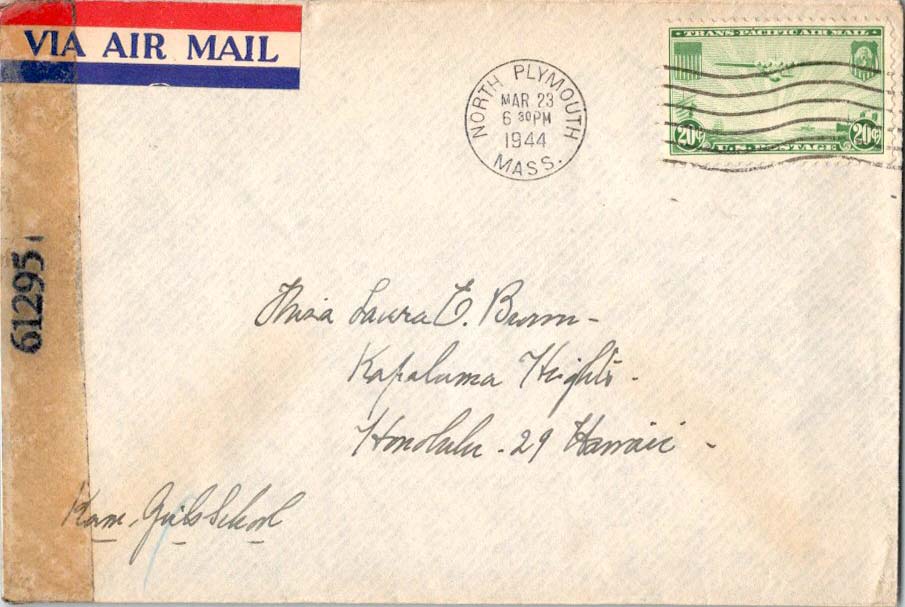 VIA AIR MAIL
NORTH PLYMOUTH
MAR 23
6 30 PM
1944
MASS.
TRANS-PACIFIC AIR MAIL
20¢ 20¢
U.S. POSTAGE
61295
Miss Laura E. Brown -
Kapalama Heights -
Honolulu - 29 Hawaii -
Kam. Girls School